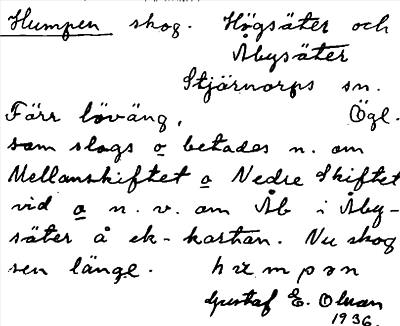 Humpen skog. Högsäter och
Åbysäter
Stjärnorps sn.
Förr löväng, Ögl.
som slogs o betades n. om
Mellanskiftet o Nedre Skiftet
vid o n. v. om Åb i Åby-
säter å ek-kartan. Nu skog
sen länge. hɯmpən
Gustaf E. Olson
1936.